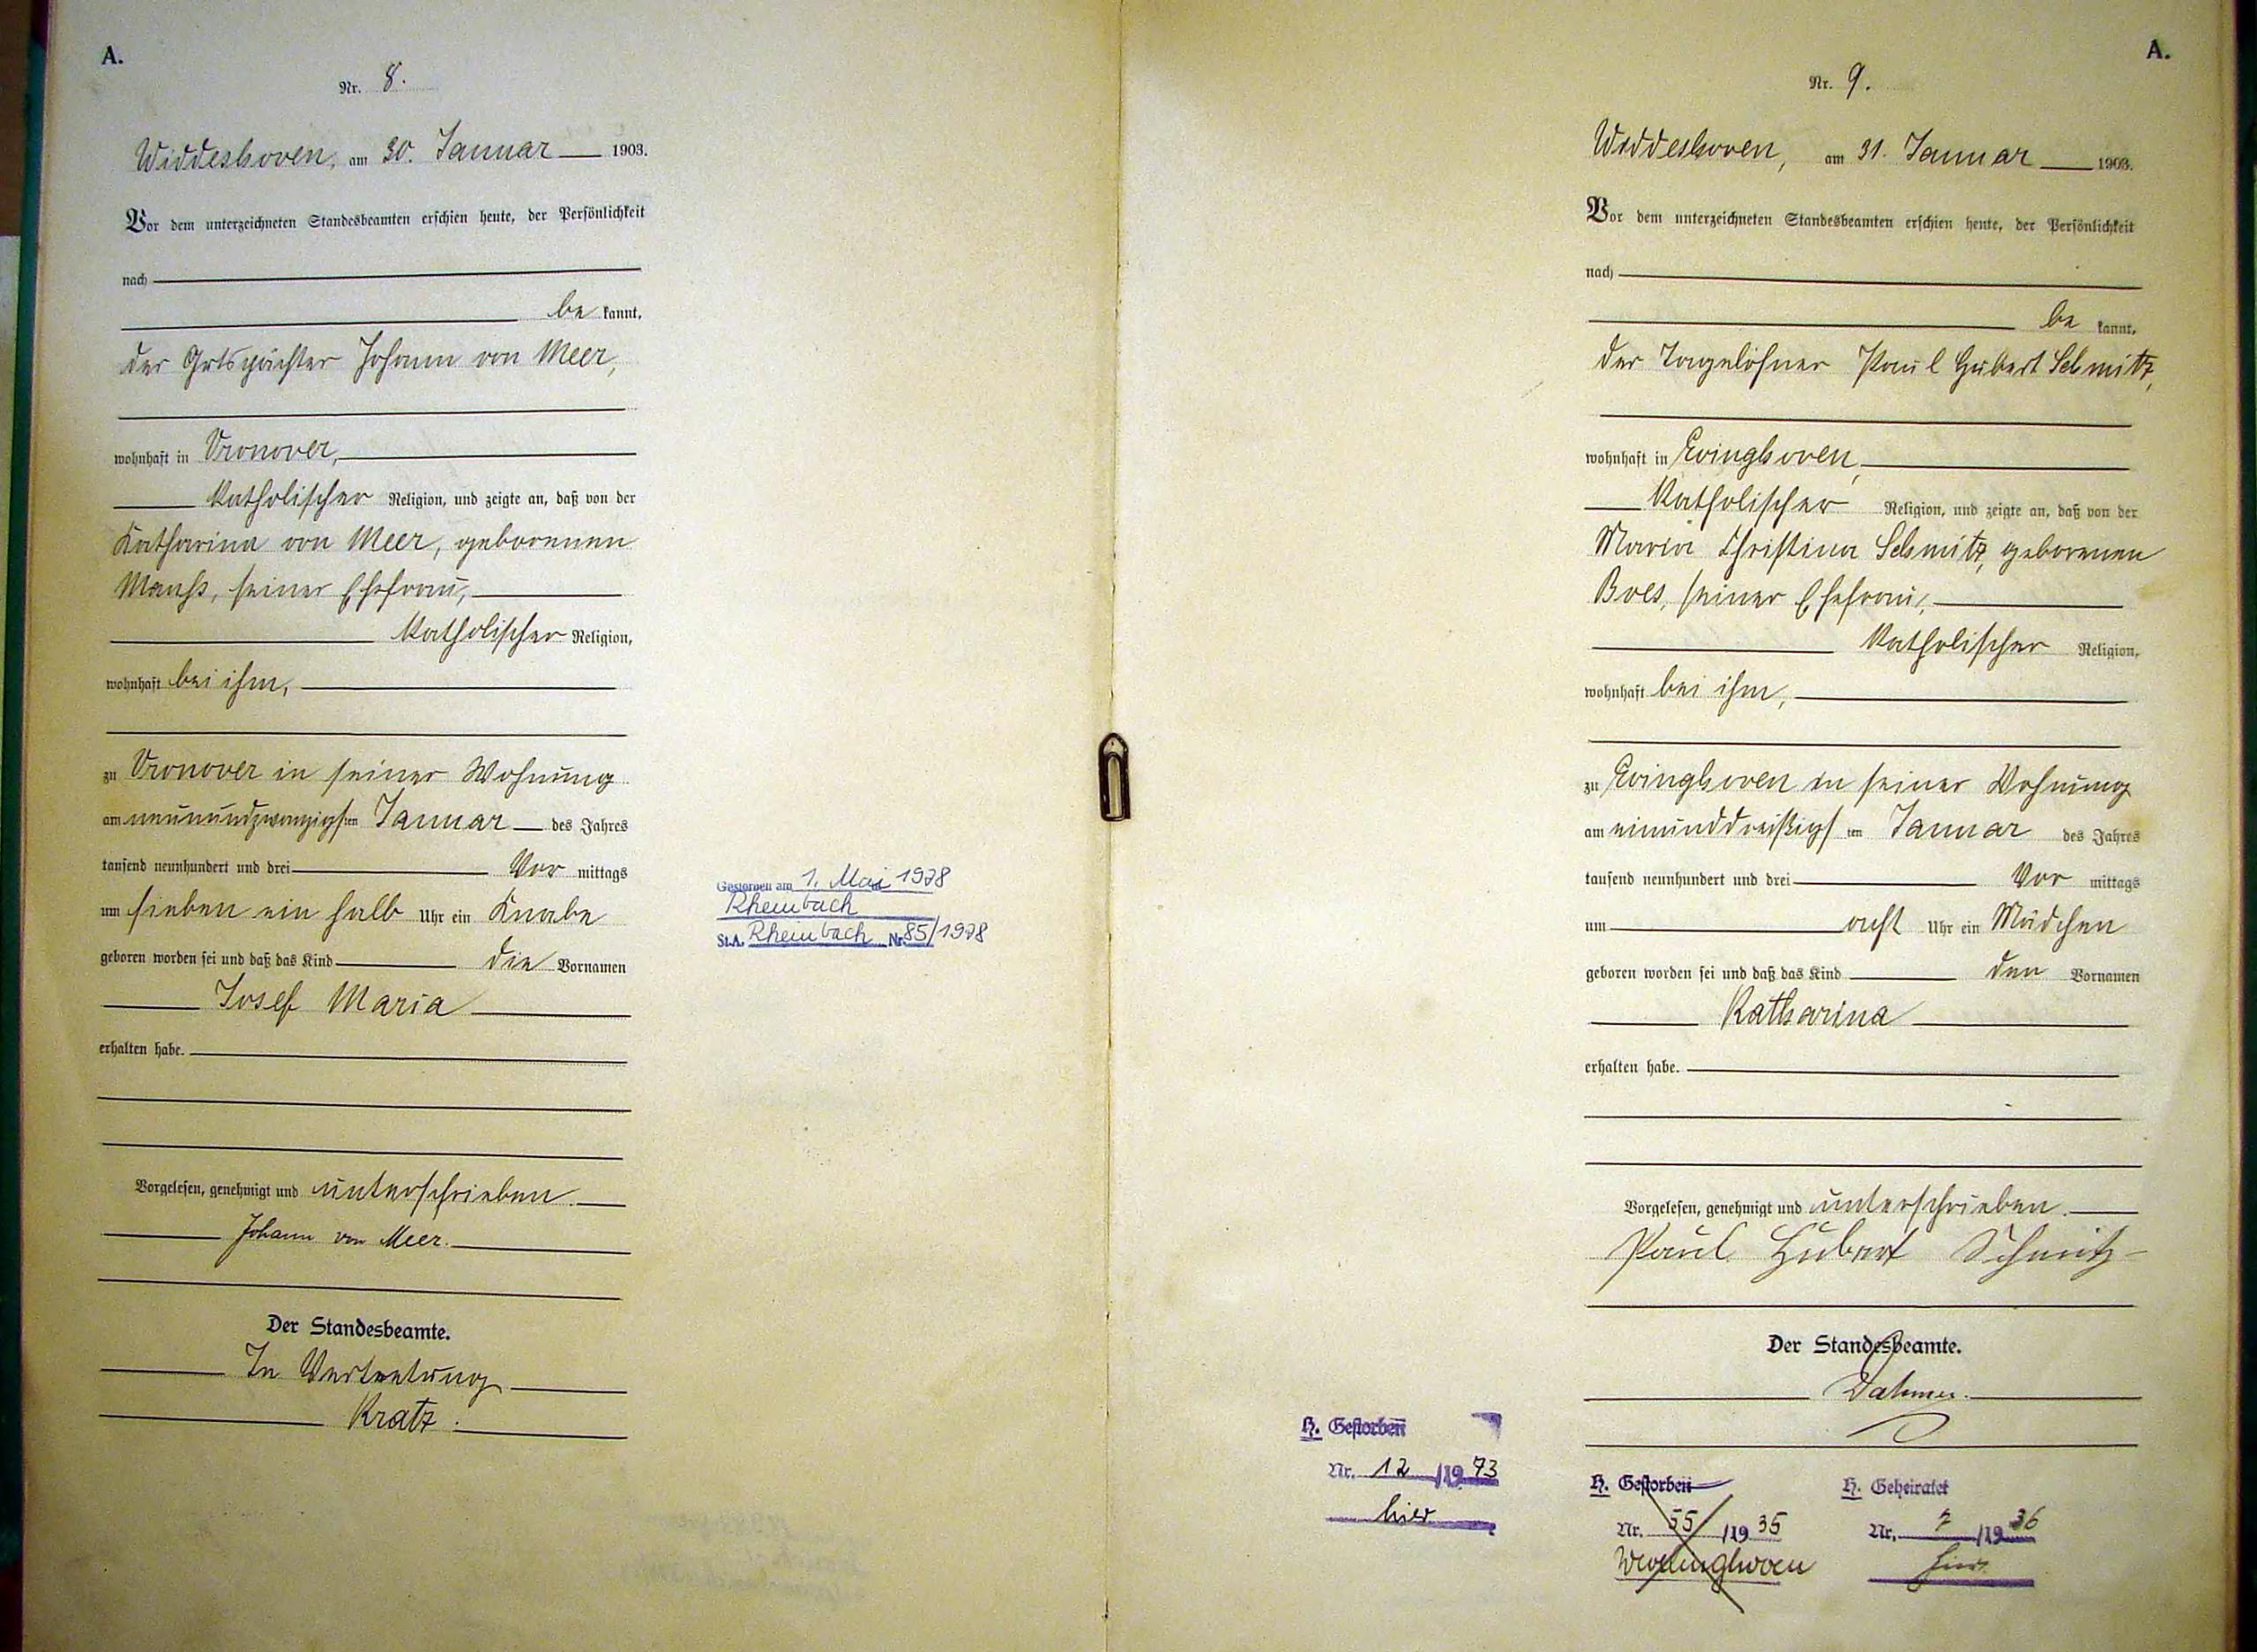 A.
Nr. 8.
Widdeshoven, am 30. Januar 1903.
Vor dem unterzeichneten Standesbeamten erschien heute, der Persönlichkeit
nach
be kannt,
der Gutspächter Johann von Meer,
wohnhaft in Vronover,
katholischer Religion, und zeigte an, daß von der
Katharina von Meer, geborenen
Mauß, seiner Ehefrau,
katholischer Religion,
wohnhaft bei ihm,
zu Vronover in seiner Wohnung
am neunundzwanzigsten Januar des Jahres
tausend neunhundert und drei Vor mittags
um sieben ein halb Uhr ein Knabe
geboren worden sei und daß das Kind die Vornamen
Josef Maria
erhalten habe.
Vorgelesen, genehmigt und unterschrieben.
Johann von Meer.
Der Standesbeamte.
In Vertretung
Kratz.
Gestorben am 1. Mai 1978
Rheinbach
St.A. Rheinbach Nr. 85/1978
A.
Nr. 9.
Widdeshoven, am 31. Januar 1903.
Vor dem unterzeichneten Standesbeamten erschien heute, der Persönlichkeit
nach
be kannt,
der Tagelöhner Paul Hubert Schmitz,
wohnhaft in Evinghoven,
katholischer Religion, und zeigte an, daß von der
Maria Christina Schmitz, geborenen
Boes, seiner Ehefrau,
katholischer Religion,
wohnhaft bei ihm,
zu Evinghoven in seiner Wohnung
am einunddreißigsten Januar des Jahres
tausend neunhundert und drei Vor mittags
um acht Uhr ein Mädchen
geboren worden sei und daß das Kind den Vornamen
Katharina
erhalten habe.
Vorgelesen, genehmigt und unterschrieben.
Paul Hubert Schmitz
Der Standesbeamte.
Dahmen.
H. Gestorben
Nr. 12 /1973
hier
H. Gestorben
Nr. 55 /1935
Wevelinghoven
H. Geheiratet
Nr. 7 /1936
hier